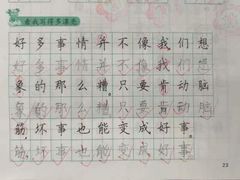 看我写得多漂亮
好多事情并不像我们想
好多事情并不像我们想
象的那么糟。只要肯动脑
象的那么糟。只要肯动脑
筋,坏事也能变成好事。
筋,坏事也能变成好事。
23